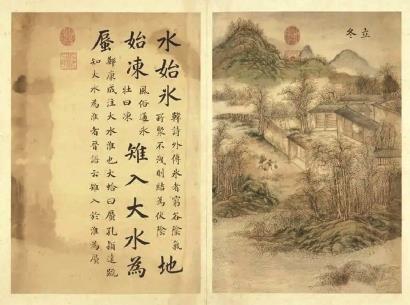 立冬
水始冰
韓詩外傳冰者窮谷陰氣
所聚不洩則結為伏陰
地
始凍
風俗通冰
壯曰凍
雉入大水為
蜃
鄭康成注大水淮也大蛤曰蜃孔穎達疏
知大水為淮者晉語云雉入於淮為蜃